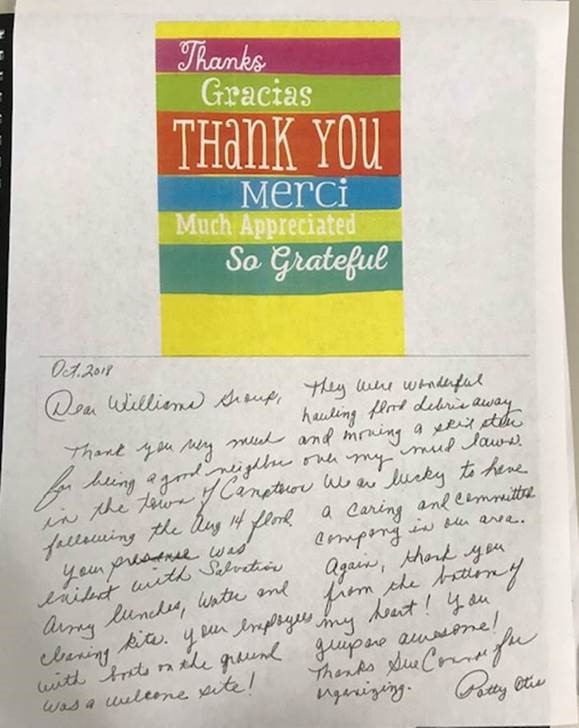 Thanks
Gracias
THANK YOU
Merci
Much Appreciated
So Grateful
Oct, 2018
Dear Williams Group,
Thank you very much
for being a good neighbor
in the town of Camptown
following the Aug 14 flood.
Your presense was
evident with Salvation
Army lunches, water and
cleaning kits. Your employees
with boots on the ground
was a welcome site!
They were wonderful
hauling flood debris away
and moving a skid steer
over my mud lawn.
We are lucky to have
a caring and committed
company in our area.
Again, thank you
from the bottom of
my heart! You
guys are awesome!
Thanks Sue for
organizing.
Patty Otis